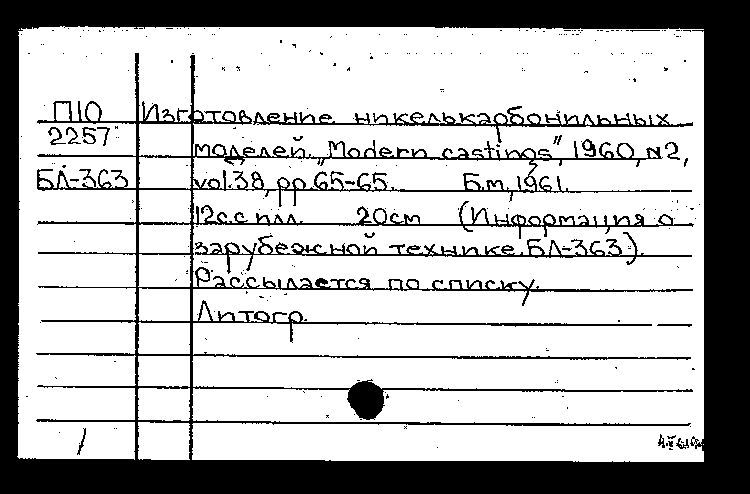 П10 Изготовление никелькарбонильных
2257
моделей. „Modern castings", 1960, N2,
БЛ-363 vol.38, pp.65-65. Б.м., 1961.
12с.с илл. 20см (Информация о
зарубежной технике. БЛ-363).
Рассылается по списку.
Литогр.